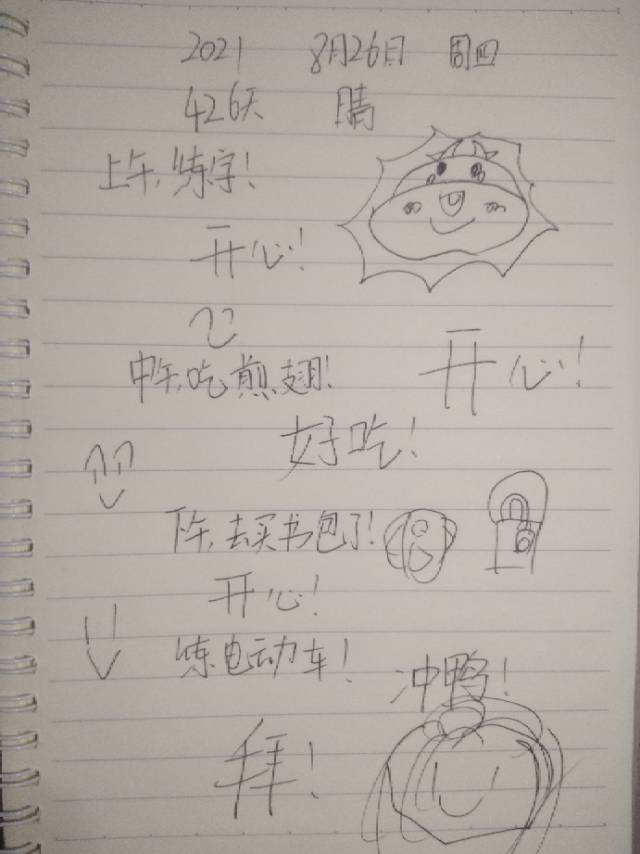 2021 8月26日 周四
426天 晴
上午,练字!
开心!
中午,吃煎翅!
开心!
好吃!
下午,去买书包了!
开心!
练电动车!
冲鸭!
拜!